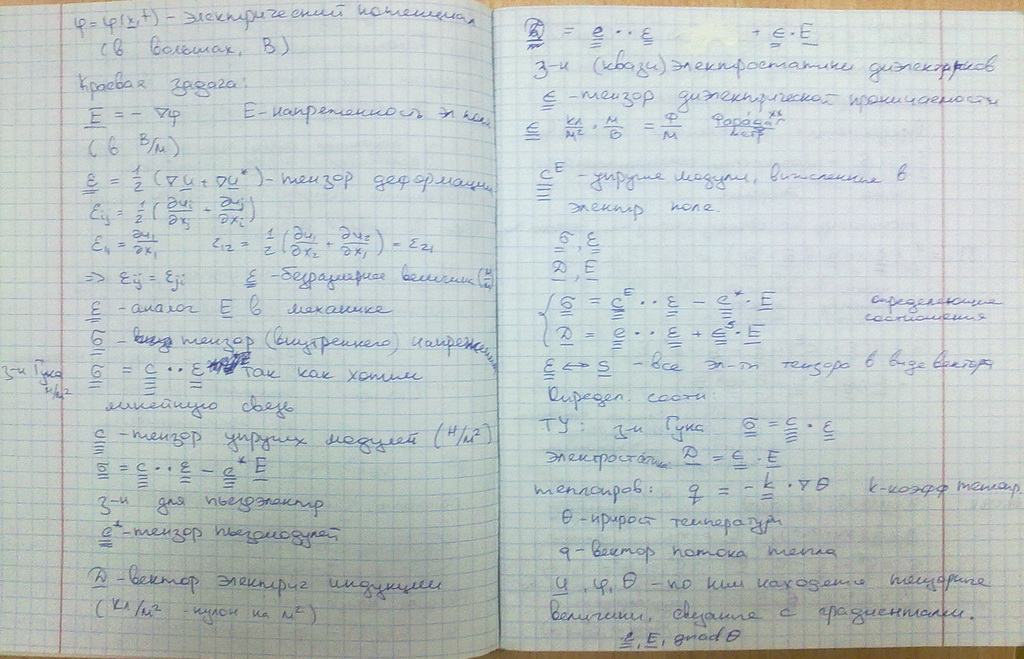 φ = φ(x,t) – электрический потенциал
(в вольтах, В)
Краевая задача:
E = – ∇φ   E – напряженность эл поля
(в В/м)
ε = 1/2 (∇u + ∇u*) – тензор деформации
εij = 1/2 (∂ui/∂xj + ∂uj/∂xi)
ε11 = ∂u1/∂x1   ε12 = 1/2 (∂u1/∂x2 + ∂u2/∂x1) = ε21
=> εij = εji   ε – безразмерная величина (м/м)
ε – аналог E в механике
σ – тензор (внутреннего) напряжения
з-н Гука Н/м² σ = c ·· ε так как хотим
линейную связь
c – тензор упругих модулей (Н/м²)
σ = c ·· ε – e* E
з-н для пьезоэлектр
e* – тензор пьезомодулей
D – вектор электрич индукции
(Кл/м² – кулон на м²)
D = e ·· ε + ϵ · E
з-н (квази)электростатики диэлектриков
ϵ – тензор диэлектрической проницаемости
ϵ Кл/м² · м/В = Ф/м Фарада/метр
c^E – упругие модули, вычисленные в
электр поле.
σ, ε
D, E
{ σ = c^E ·· ε – e* · E   определяющие
D = e ·· ε + ϵ^S · E   соотношения
ε ↔ S – все эл-ты тензора в виде вектора
Определ. соотн.
ТУ: з-н Гука σ = c · ε
электростатик D = ϵ · E
теплопров: q = – k · ∇θ   k – коэфф теплопр.
θ – прирост температуры
q – вектор потока тепла
u, φ, θ – по ним находятся тензорные
величины, связанные с градиентами.
ε, E, grad θ